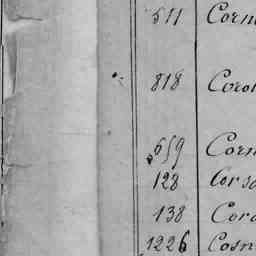 511 Corn
818 Coro
659 Corn
128 Corsa
138 Cord
1226 Cosn